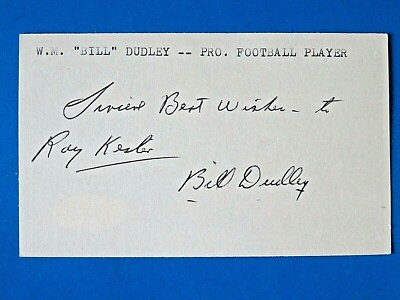 W.M. "BILL" DUDLEY -- PRO. FOOTBALL PLAYER
Sincere Best Wishes - to
Ray Kesler
Bill Dudley